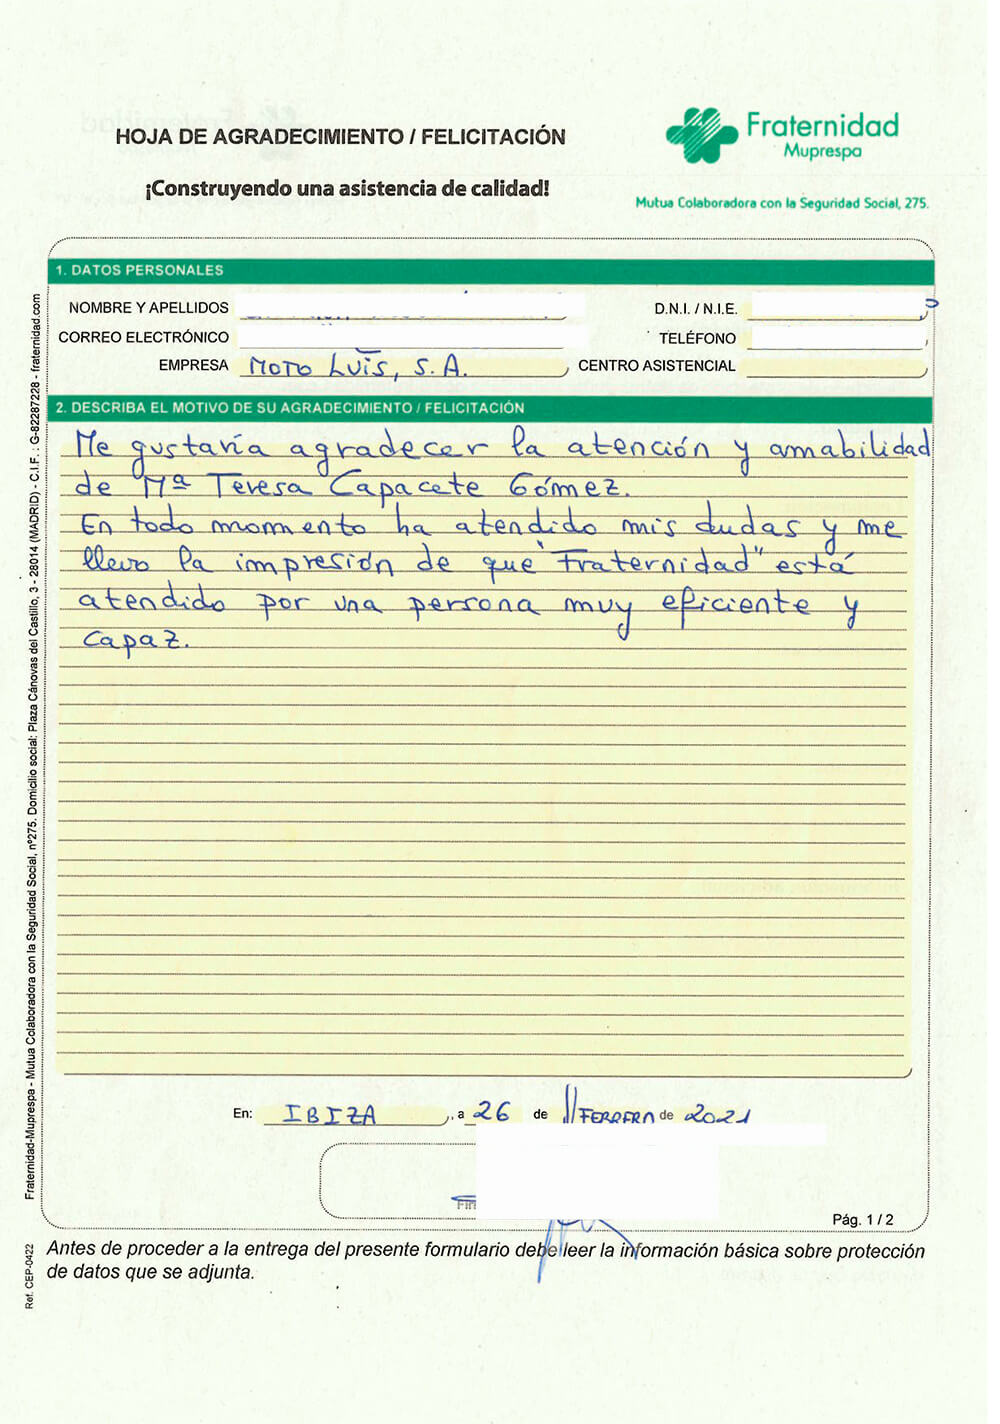 HOJA DE AGRADECIMIENTO / FELICITACIÓN
¡Construyendo una asistencia de calidad!
Fraternidad
Muprespa
Mutua Colaboradora con la Seguridad Social, 275.
1. DATOS PERSONALES
NOMBRE Y APELLIDOS D.N.I. / N.I.E.
CORREO ELECTRÓNICO TELÉFONO
EMPRESA MOTO LUÍS, S.A. CENTRO ASISTENCIAL
2. DESCRIBA EL MOTIVO DE SU AGRADECIMIENTO / FELICITACIÓN
Me gustaría agradecer la atención y amabilidad
de Mª Teresa Capacete Gómez.
En todo momento ha atendido mis dudas y me
llevo la impresión de que "Fraternidad" está
atendido por una persona muy eficiente y
capaz.
En: IBIZA, a 26 de FEBRERO de 2021
Pág. 1 / 2
Antes de proceder a la entrega del presente formulario debe leer la información básica sobre protección
de datos que se adjunta.
Fraternidad-Muprespa - Mutua Colaboradora con la Seguridad Social, nº275. Domicilio social: Plaza Cánovas del Castillo, 3 - 28014 (MADRID) - C.I.F. : G-82287228 - fraternidad.com
Ref. CEP-0422